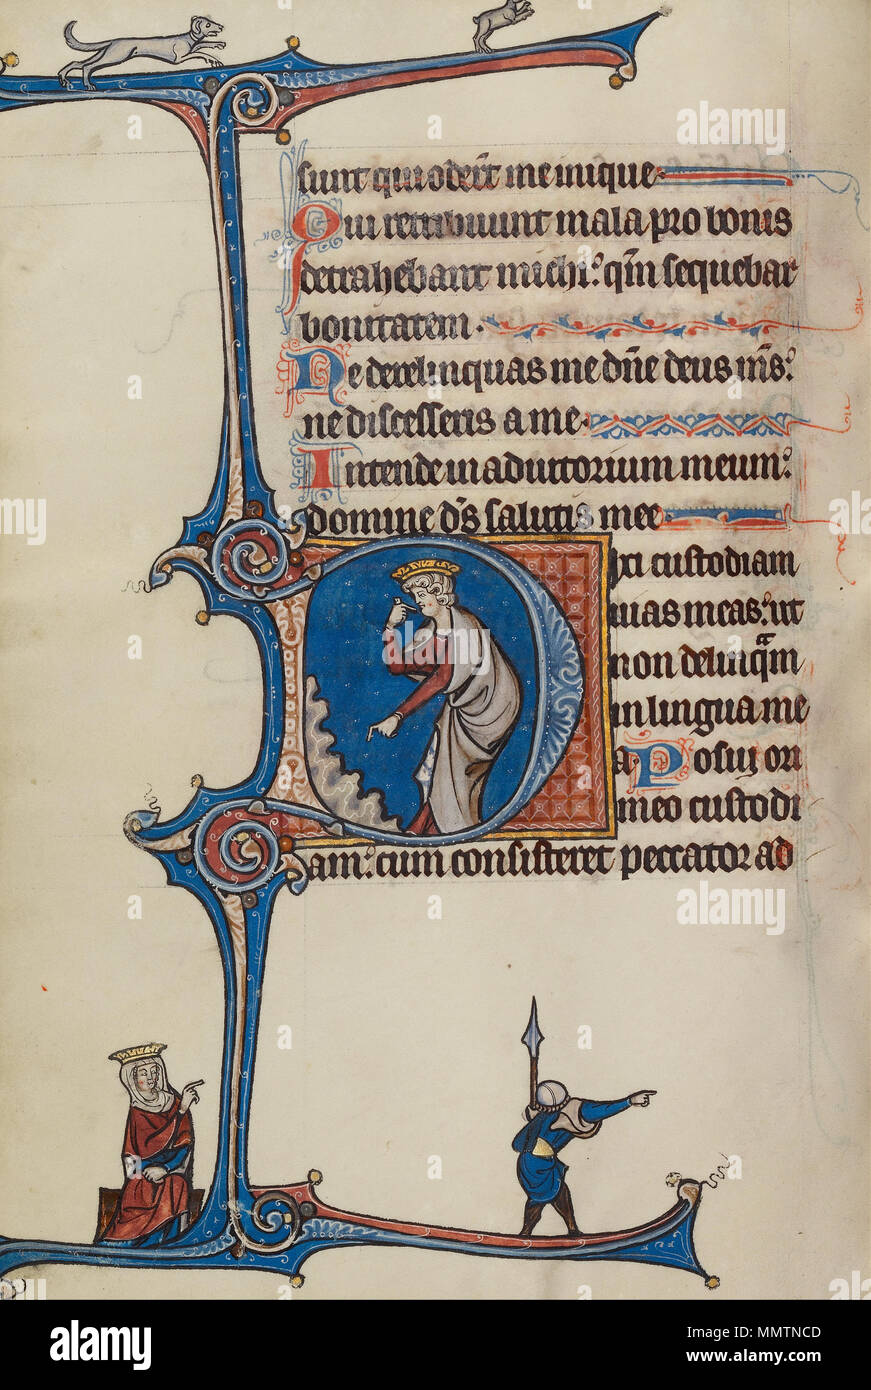 sunt qui oder̄t me inique
Qui retribuunt mala pro bonis
detrahebant michi: qm̄ sequebar
bonitatem.
Ne derelinquas me dn̄e deus ms̄:
ne discesseris a me.
Intende in adiutorium meum:
domine ds̄ salutis mee
Dixi custodiam
uias meas: ut
non delinqam
in lingua me
a. Posui ori
meo custodi
am: cum consisteret peccator ad
alamy
Image ID: MMTNCD
www.alamy.com